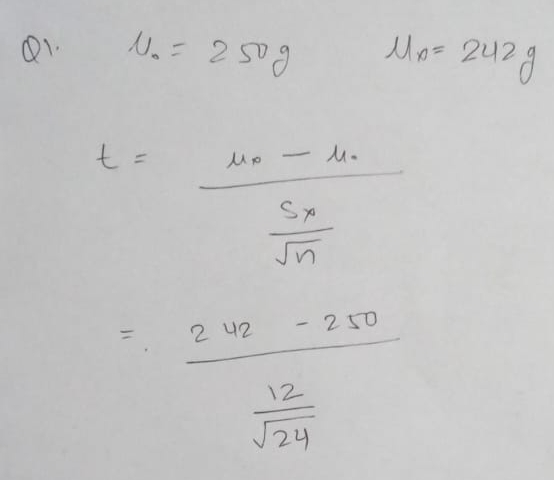 Q1. μ₀ = 250g μₓ = 242g
t = μₓ - μ₀
Sₓ
√n
= 242 - 250
12
√24